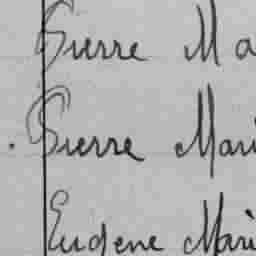 Pierre Ma
Pierre Mari
Eugene Mari